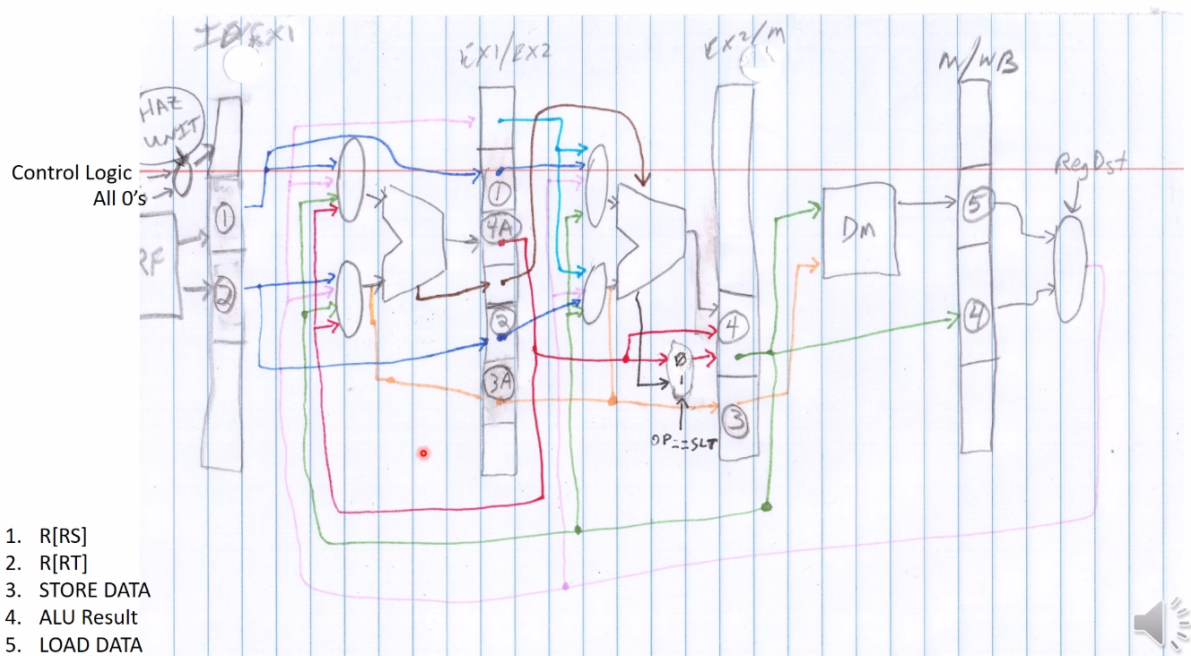 ID/EX1
EX1/EX2
EX2/M
M/WB
HAZ
UNIT
Control Logic
All 0's
RF
1
2
1
4A
2
3A
4
3
0
1
OP==SLT
DM
5
4
RegDst
1. R[RS]
2. R[RT]
3. STORE DATA
4. ALU Result
5. LOAD DATA